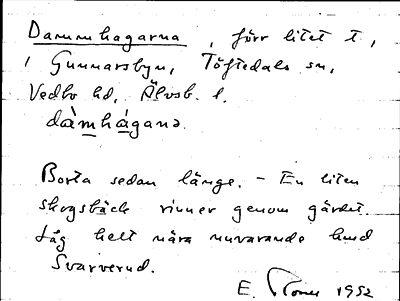 Dammhagarna, förr litet t,
i Gunnarsbyn, Töftedals sn,
Vedbo hd, Älvsb. l.
dàmhágana.
Borta sedan länge. - En liten
skogsbäck rinner genom gärdet.
Låg helt nära nuvarande
Svarverud.
E. 1952